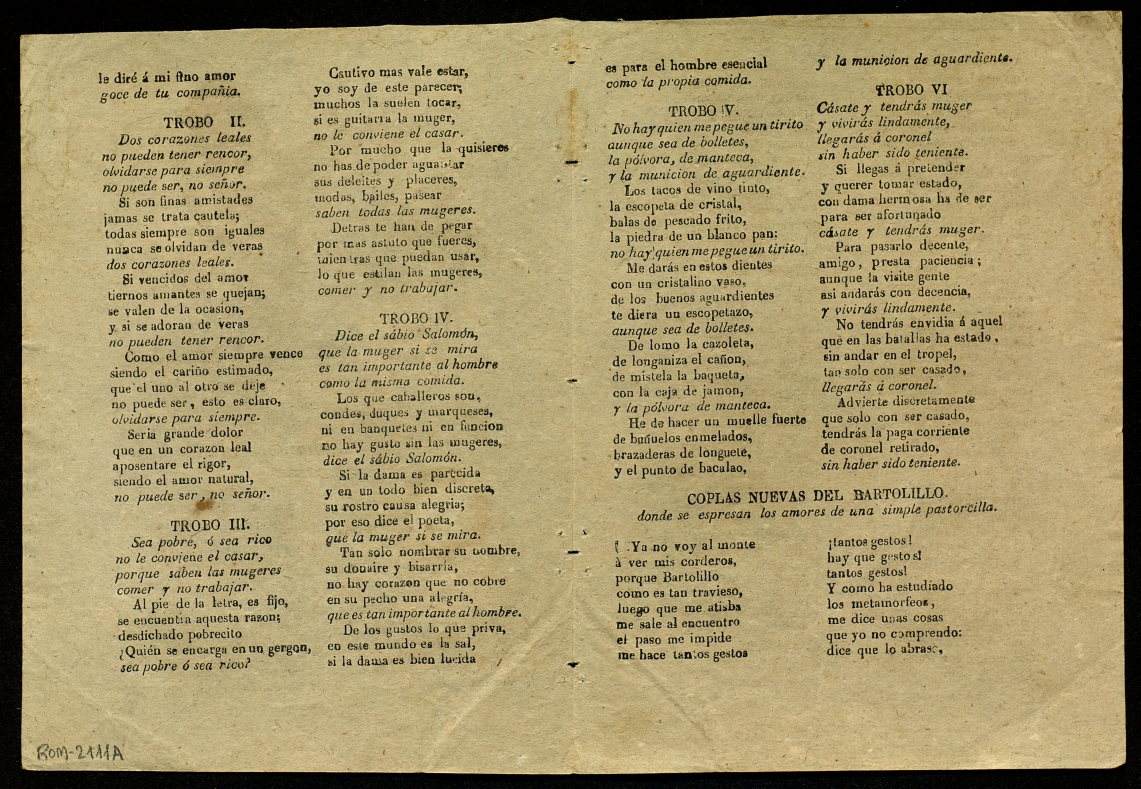 le diré á mi fino amor
goce de tu compañia.
TROBO II.
Dos corazones leales
no pueden tener rencor,
olvidarse para siempre
no puede ser, no señor.
Si son finas amistades
jamas se trata cautela;
todas siempre son iguales
nunca se olvidan de veras
dos corazones leales.
Si vencidos del amor
tiernos amantes se quejan;
se valen de la ocasion,
y si se adoran de veras
no pueden tener rencor.
Como el amor siempre vence
siendo el cariño estimado,
que el uno al otro se deje
no puede ser, esto es claro,
olvidarse para siempre.
Seria grande dolor
que en un corazon leal
aposentare el rigor,
siendo el amor natural,
no puede ser, no señor.
TROBO III.
Sea pobre, ó sea rico
no le conviene el casar,
porque saben las mugeres
comer y no trabajar.
Al pie de la letra, es fijo,
se encuentra aquesta razon;
desdichado pobrecito
¿Quién se encarga en un gergon,
sea pobre ó sea rico?
Cautivo mas vale estar,
yo soy de este parecer;
muchos la suelen tocar,
si es guitarra la muger,
no le conviene el casar.
Por mucho que la quisieres
no has de poder aguantar
sus deleites y placeres,
modas, bailes, pasear
saben todas las mugeres.
Detras te han de pegar
por mas astuto que fueres,
mientras que puedan usar,
lo que estilan las mugeres,
comer y no trabajar.
TROBO IV.
Dice el sábio Salomón,
que la muger si se mira
es tan importante al hombre
como la misma comida.
Los que caballeros son,
condes, duques y marqueses,
ni en banquetes ni en funcion
no hay gusto sin las mugeres,
dice el sábio Salomón.
Si la dama es parecida
y en un todo bien discreta,
su rostro causa alegria;
por eso dice el poeta,
que la muger si se mira.
Tan solo nombrar su nombre,
su donaire y bisarría,
no hay corazon que no cobre
en su pecho una alegría,
que es tan importante al hombre.
De los gustos lo que priva,
en este mundo es la sal,
si la dama es bien lucida
es para el hombre esencial
como la propia comida.
TROBO V.
No hay quien me pegue un tirito
aunque sea de bolletes,
la pólvora, de manteca,
y la municion de aguardiente.
Los tacos de vino tinto,
la escopeta de cristal,
balas de pescado frito,
la piedra de un blanco pan;
no hay quien me pegue un tirito.
Me darás en estos dientes
con un cristalino vaso,
de los buenos aguardientes
te diera un escopetazo,
aunque sea de bolletes.
De lomo la cazoleta,
de longaniza el cañon,
de mistela la baqueta,
con la caja de jamon,
y la pólvora de manteca.
He de hacer un muelle fuerte
de buñuelos enmelados,
brazaderas de longuete,
y el punto de bacalao,
y la municion de aguardiente.
TROBO VI
Cásate y tendrás muger
y vivirás lindamente,
llegarás á coronel
sin haber sido teniente.
Si llegas á pretender
y querer tomar estado,
con dama hermosa ha de ser
para ser afortunado
cásate y tendrás muger.
Para pasarlo decente,
amigo, presta paciencia;
aunque la visite gente
asi andarás con decencia,
y vivirás lindamente.
No tendrás envidia á aquel
que en las batallas ha estado,
sin andar en el tropel,
tan solo con ser casado,
llegarás á coronel.
Advierte discretamente
que solo con ser casado,
tendrás la paga corriente
de coronel retirado,
sin haber sido teniente.
COPLAS NUEVAS DEL BARTOLILLO.
donde se espresan los amores de una simple pastorcilla.
Ya no voy al monte
à ver mis corderos,
porque Bartolillo
como es tan travieso,
luego que me atisba
me sale al encuentro
el paso me impide
me hace tantos gestos
¡tantos gestos!
hay que gestos!
tantos gestos!
Y como ha estudiado
los metamorfeos,
me dice unas cosas
que yo no comprendo:
dice que lo abraso,
ROM-2111A